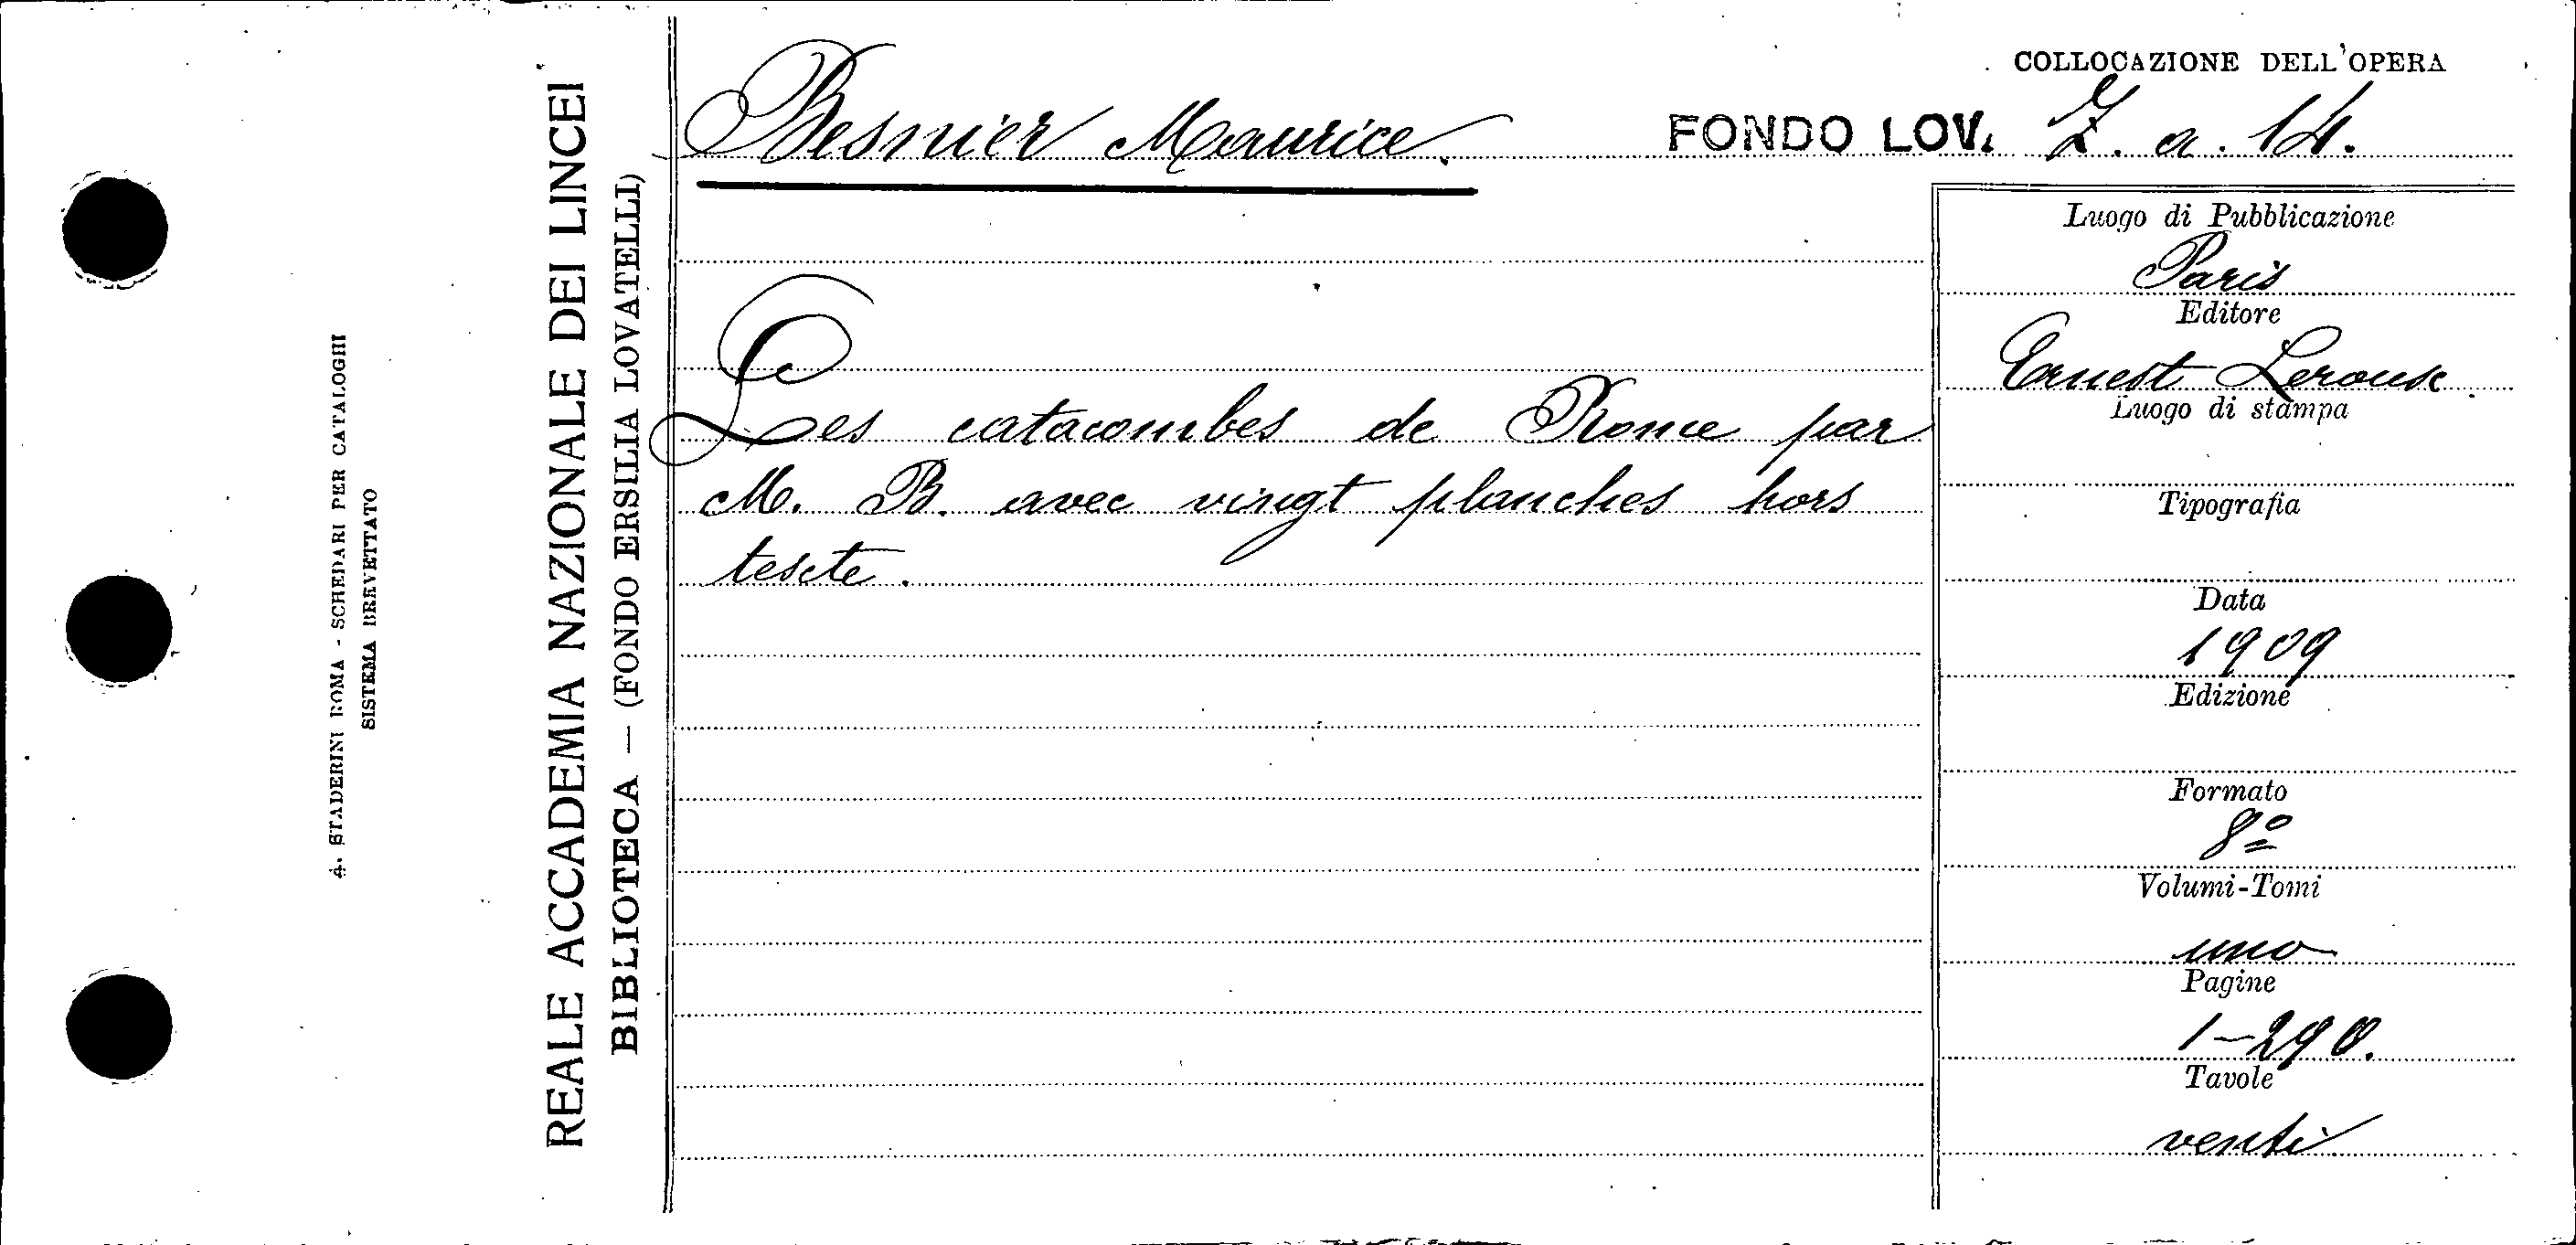 COLLOCAZIONE DELL'OPERA
Besnier Maurice.
FONDO LOV. Z. a. 14.
Les catacombes de Rome par
M. B. avec vingt planches hors
texte.
Luogo di Pubblicazione
Paris
Editore
Ernest Leroux
Luogo di stampa
Tipografia
Data
1909
Edizione
Formato
8º
Volumi-Tomi
uno
Pagine
1-290.
Tavole
venti
REALE ACCADEMIA NAZIONALE DEI LINCEI
BIBLIOTECA — (FONDO ERSILIA LOVATELLI)
A. STADERINI ROMA - SCHEDARI PER CATALOGHI
SISTEMA BREVETTATO